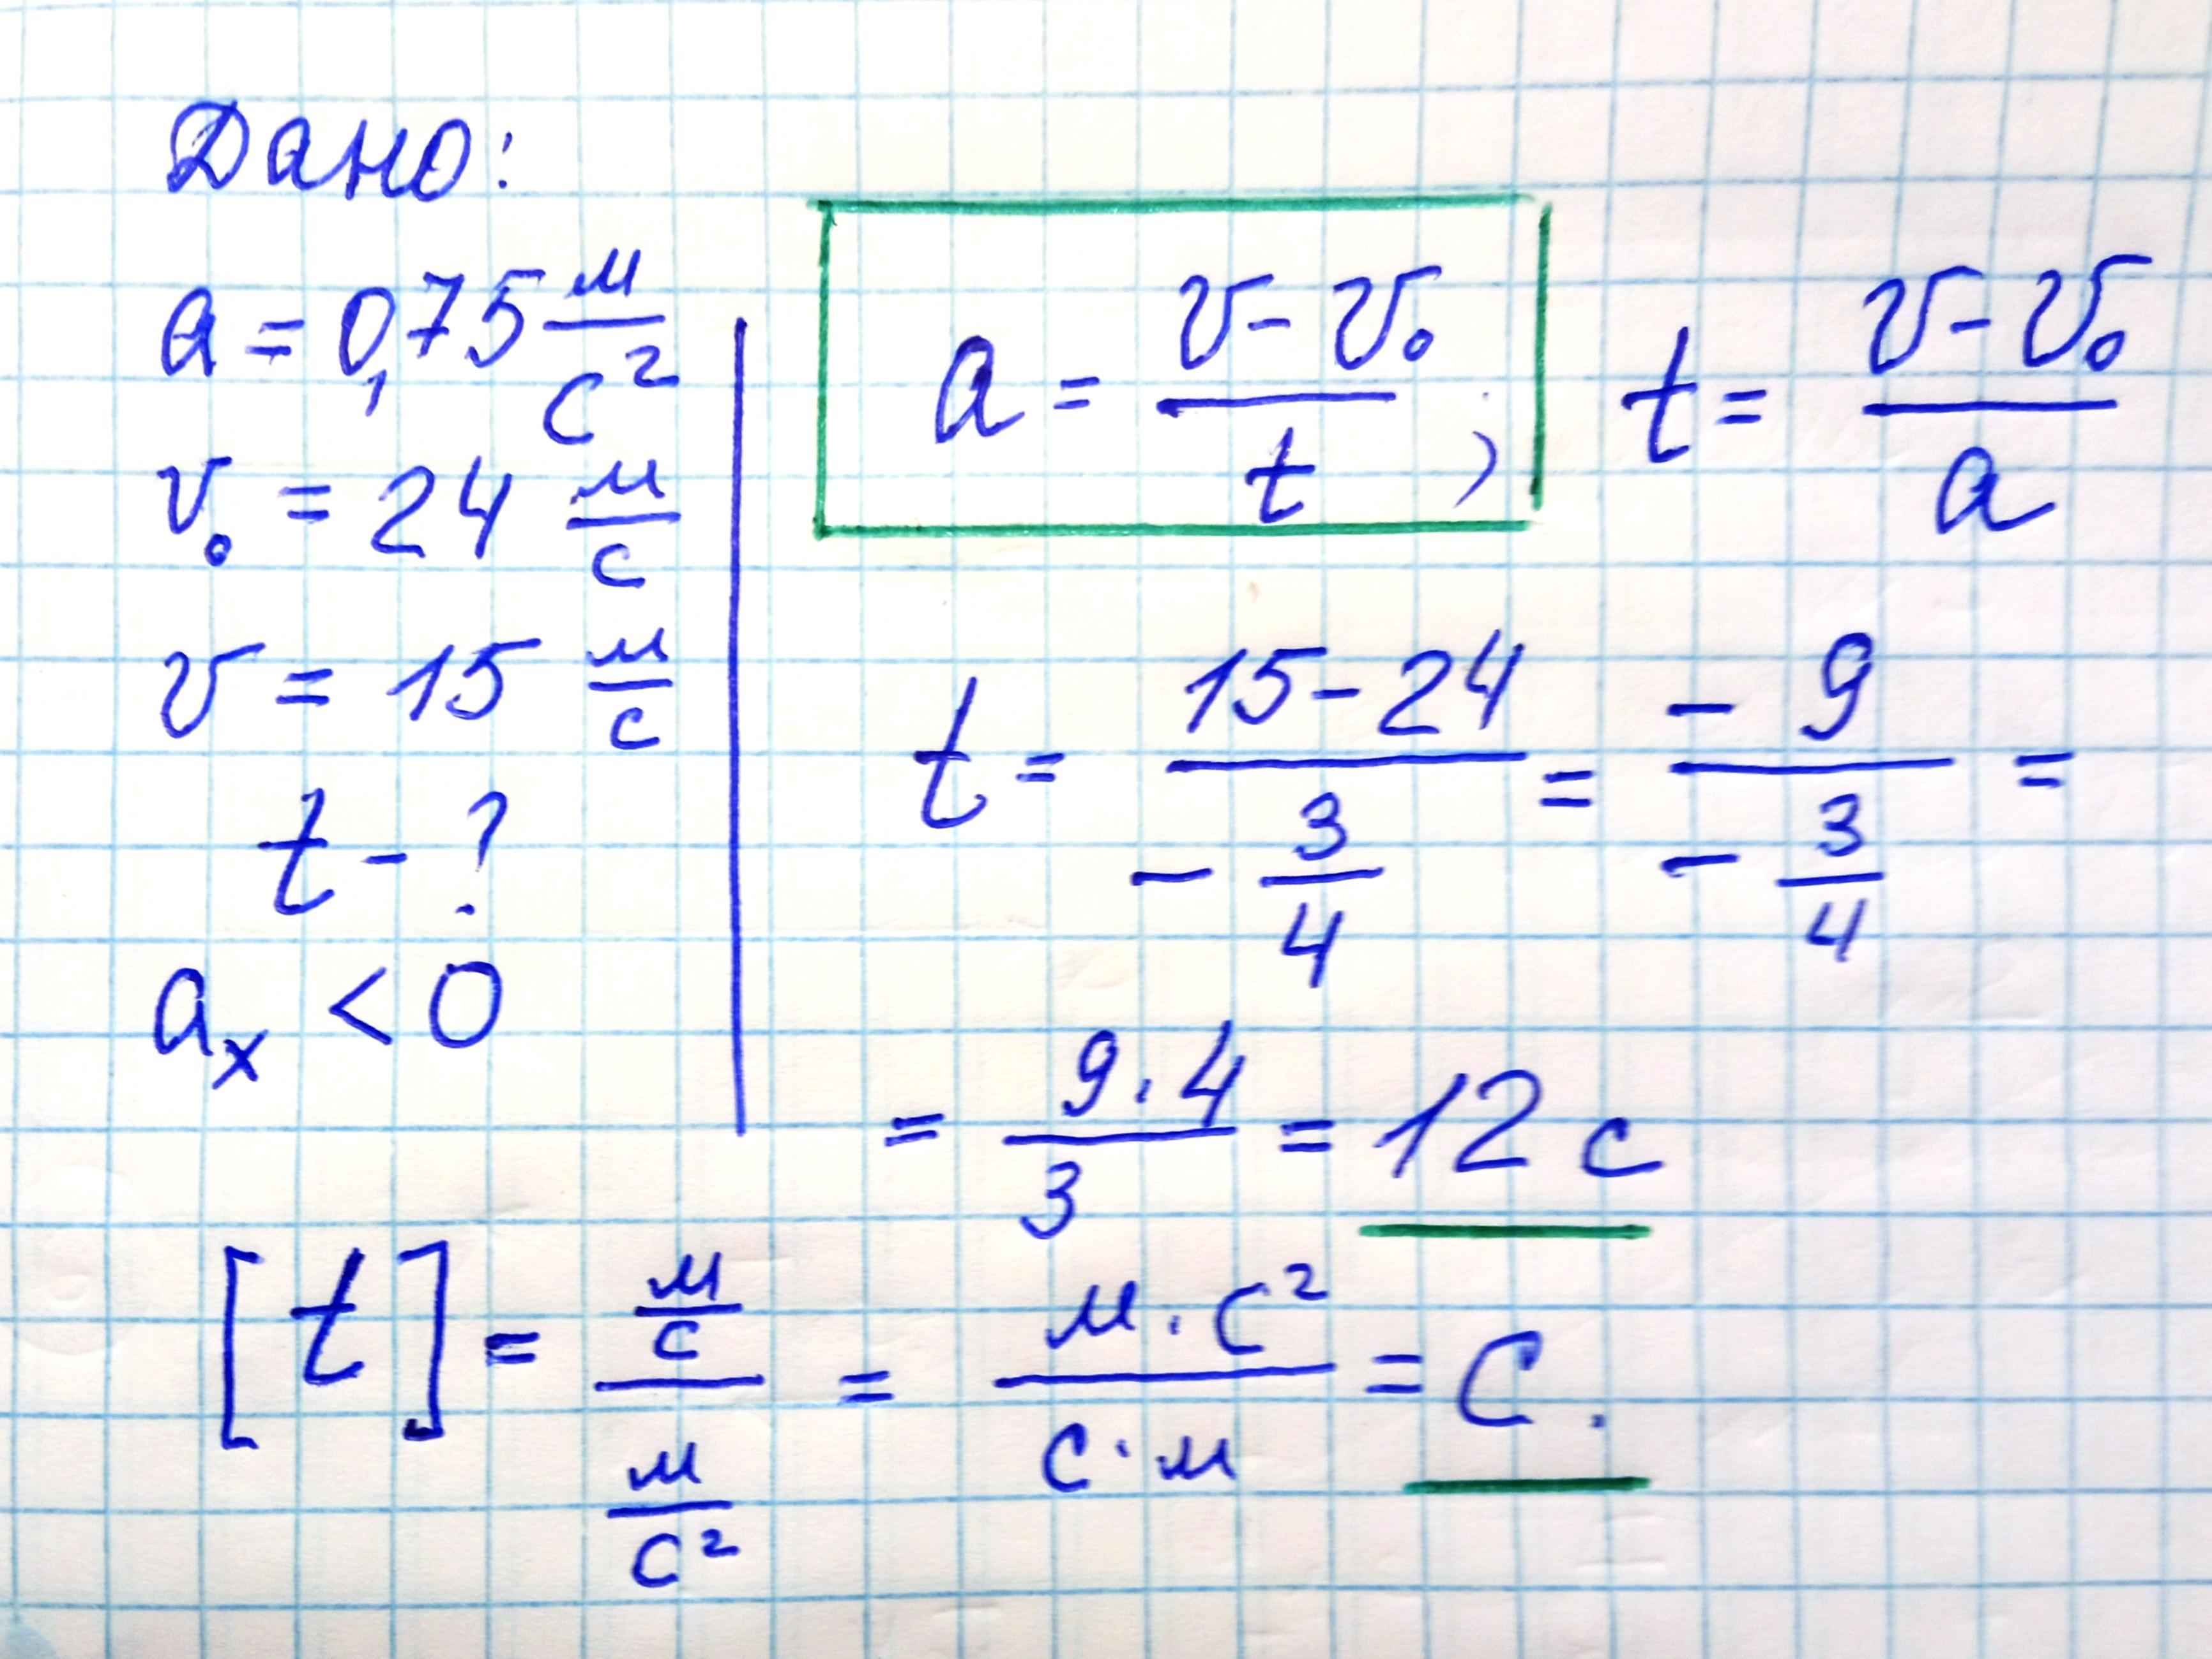 Дано:
a = 0,75 м/с²
v₀ = 24 м/с
v = 15 м/с
t - ?
aₓ < 0
a = (v - v₀)/t ; t = (v - v₀)/a
t = (15 - 24)/(- 3/4) = (- 9)/(- 3/4) =
= (9 · 4)/3 = 12 с
[t] = (м/с)/(м/с²) = (м · с²)/(с · м) = с.